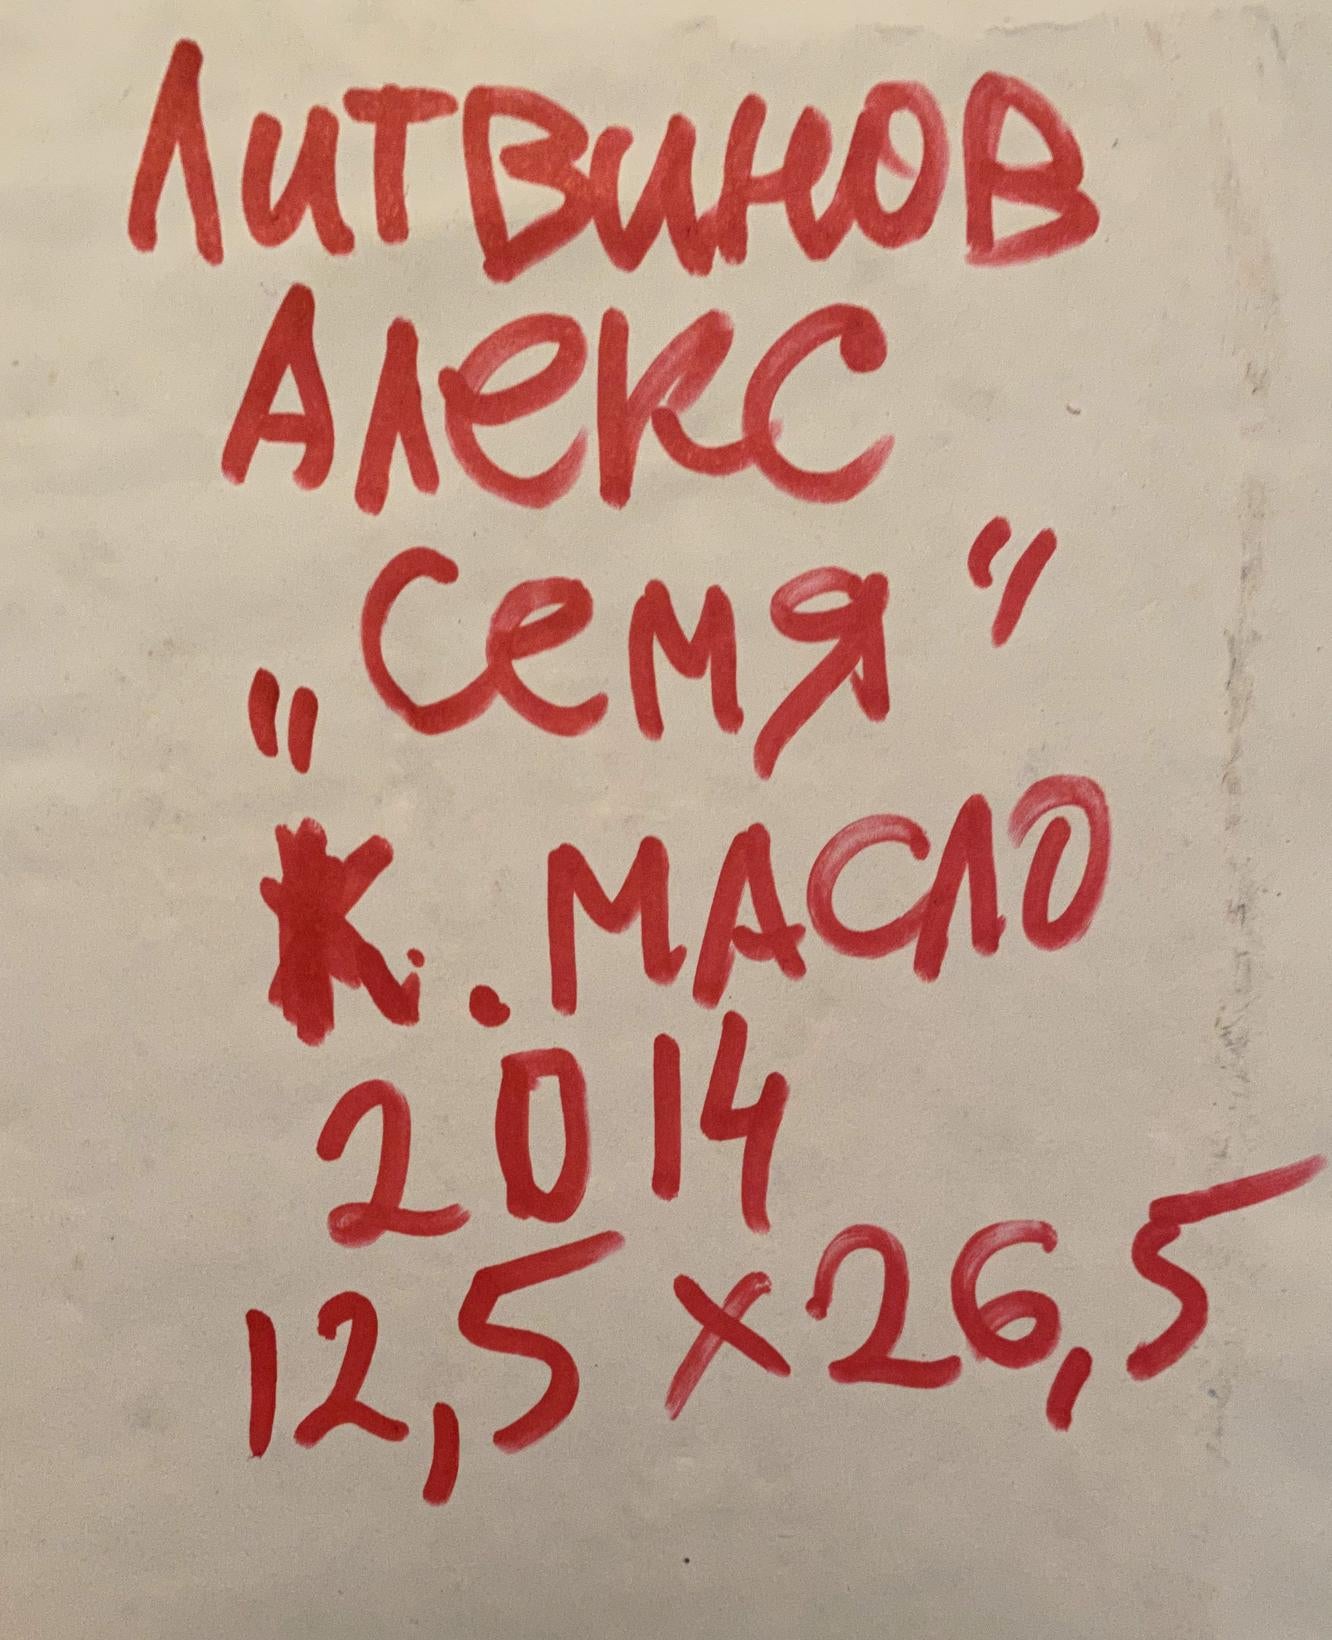 Литвинов
Алекс
„Семя"
К. МАСЛО
2014
12,5 х 26,5